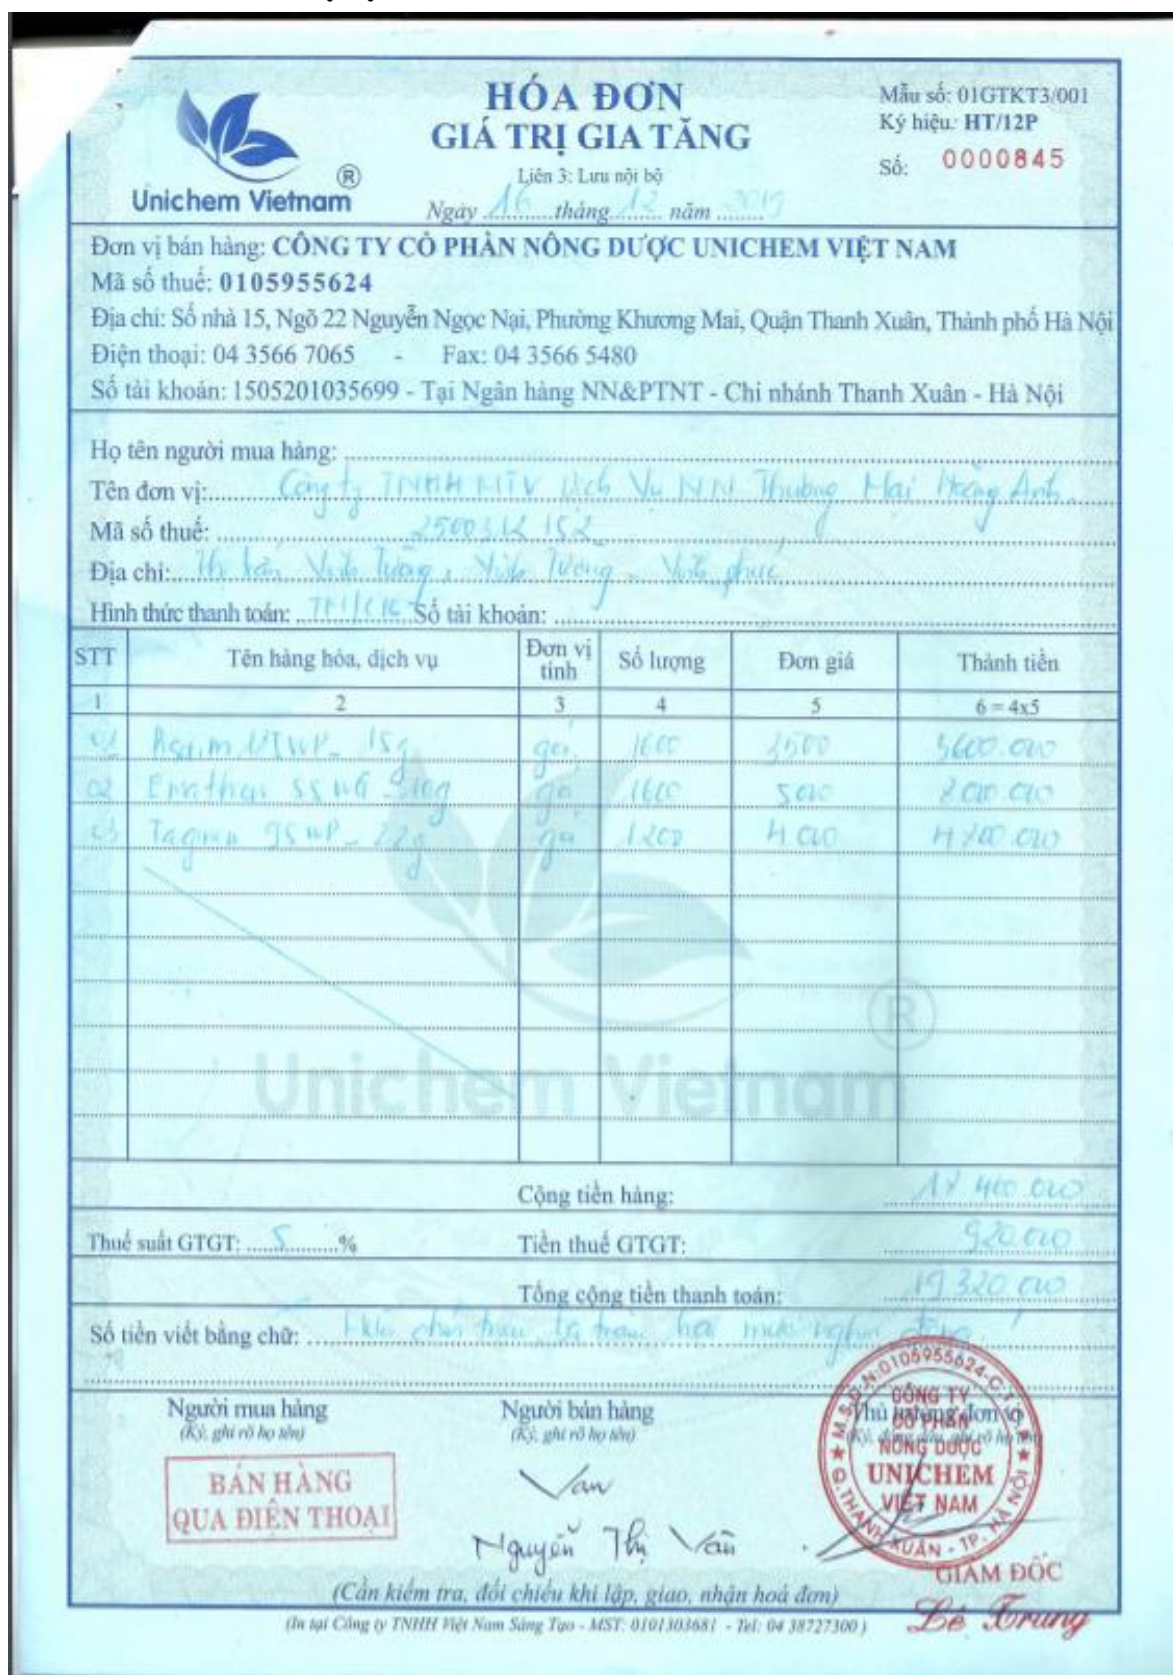 HÓA ĐƠN
GIÁ TRỊ GIA TĂNG
Liên 3: Lưu nội bộ
Ngày 16 tháng 12 năm
Mẫu số: 01GTKT3/001
Ký hiệu: HT/12P
Số: 0000845
®
Unichem Vietnam
Đơn vị bán hàng: CÔNG TY CỔ PHẦN NÔNG DƯỢC UNICHEM VIỆT NAM
Mã số thuế: 0105955624
Địa chỉ: Số nhà 15, Ngõ 22 Nguyễn Ngọc Nại, Phường Khương Mai, Quận Thanh Xuân, Thành phố Hà Nội
Điện thoại: 04 3566 7065 - Fax: 04 3566 5480
Số tài khoản: 1505201035699 - Tại Ngân hàng NN&PTNT - Chi nhánh Thanh Xuân - Hà Nội
Họ tên người mua hàng:
Tên đơn vị: Công ty TNHH MTV Dịch Vụ NN Thương Mại Hoàng Anh
Mã số thuế:
Địa chỉ: Vĩnh Tường, Vĩnh Tường, Vĩnh phúc
Hình thức thanh toán: TM/CK Số tài khoản:
STT Tên hàng hóa, dịch vụ Đơn vị tính Số lượng Đơn giá Thành tiền
1 2 3 4 5 6 = 4x5
01 15g gói 1600 3500 5600.000
02 10g gói 1600 5000 8.000.000
03 22g gói 1200 4000 4.800.000
Unichem Vietnam ®
Cộng tiền hàng: 18 400.000
Thuế suất GTGT: 5 % Tiền thuế GTGT: 920.000
Tổng cộng tiền thanh toán: 19.320.000
Số tiền viết bằng chữ: chín triệu ba trăm hai mươi nghìn đồng
Người mua hàng
(Ký, ghi rõ họ tên)
Người bán hàng
(Ký, ghi rõ họ tên)
Thủ trưởng đơn vị
(Ký, đóng dấu, ghi rõ họ tên)
BÁN HÀNG
QUA ĐIỆN THOẠI
Vân
Nguyễn Thị Vân
M.S.D.N:0105955624-C.T.C.P
CÔNG TY
CỔ PHẦN
NÔNG DƯỢC
UNICHEM
VIỆT NAM
Q.THANH XUÂN - TP. HÀ NỘI
GIÁM ĐỐC
Lê Trung
(Cần kiểm tra, đối chiếu khi lập, giao, nhận hoá đơn)
(In tại Công ty TNHH Việt Nam Sáng Tạo - MST: 0101303681 - Tel: 04 38727300)